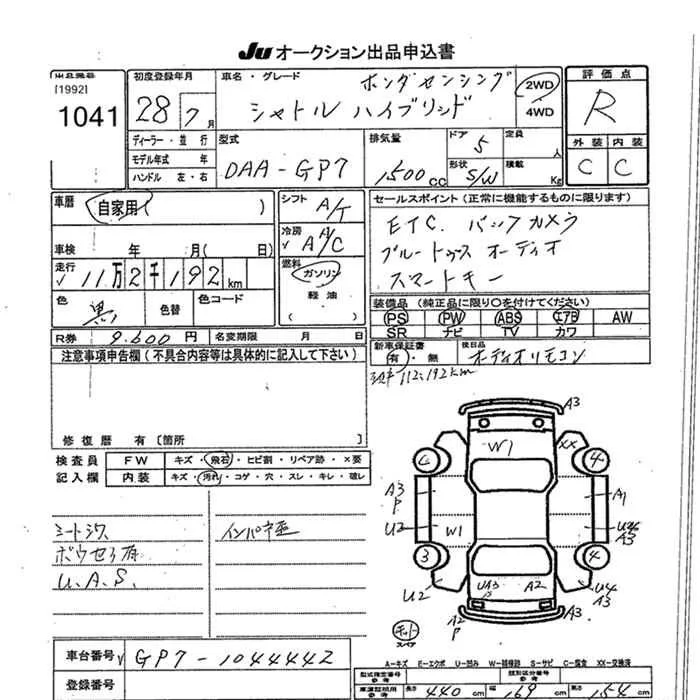 JU オークション出品申込書
出品番号 初度登録年月 車名・グレード ホンダセンシング 評価点
[1992] 1041 28年7月 シャトル ハイブリッド 2WD 4WD R
ディーラー・並行 型式 排気量 ドア 定員 外装 内装
モデル年式 年 DAA-GP7 1,500cc 5 人 C C
ハンドル 左・右 形状 S/W 積載 Kg
車歴 自家用( ) シフト A/T セールスポイント(正常に機能するものに限ります)
車検 年 月(日) 冷房 AA/C ETC. バックカメラ
走行 11万2千192km 燃料 ガソリン ブルートゥス オーディオ
軽油 スマートキー
色 黒 色替 色コード 装備品(純正品に限り〇を付けてください)
PS PW ABS エアB AW
SR ナビ TV カワ
R券 9,600円 名変期限 月 日 新車保証書 有・無 後日品 オーディオリモコン
注意事項申告欄(不具合内容等は具体的に記入して下さい) 112,192km
修復歴 有〔箇所 〕
検査員 FW キズ・飛石・ヒビ割・リペア跡・×要
記入欄 内装 キズ・汚れ・コゲ・穴・スレ・キレ・破レ
シートシワ インパネ
U.A.S.
A3
W1 XX
C 4
A3 P A1
U2 W1 U4 A3
3 4
U2 UA3 P A2 U4 A3
A2 P A3
スペア
A-キズ E-エクボ U-凹み W-補修跡 S-サビ C-腐食 XX-交換済
車台番号 GP7-1044442
登録番号 型式指定番号 参考 類別区分番号 参考
長さ 440cm 幅 169cm 高さ 154cm